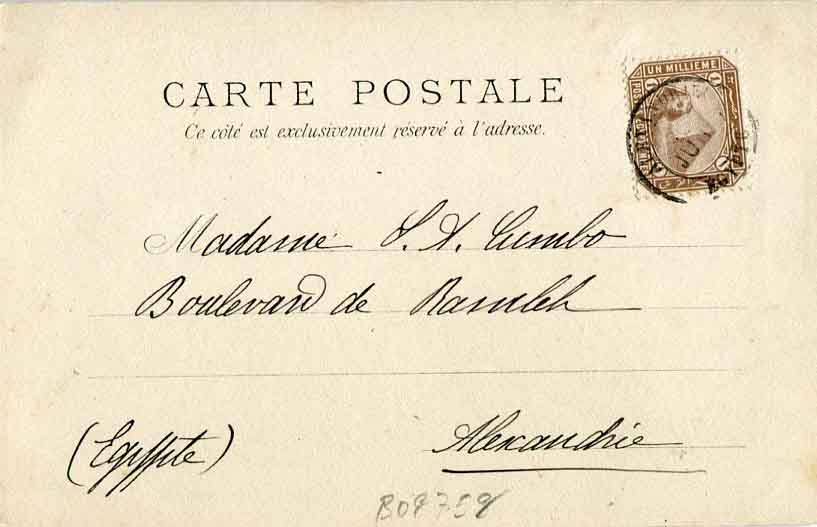 CARTE POSTALE
Ce côté est exclusivement réservé à l'adresse.
UN MILLIEME
JUN
Madame S. A. Cumbo
Boulevard de Ramleh
(Egypte)
Alexandrie